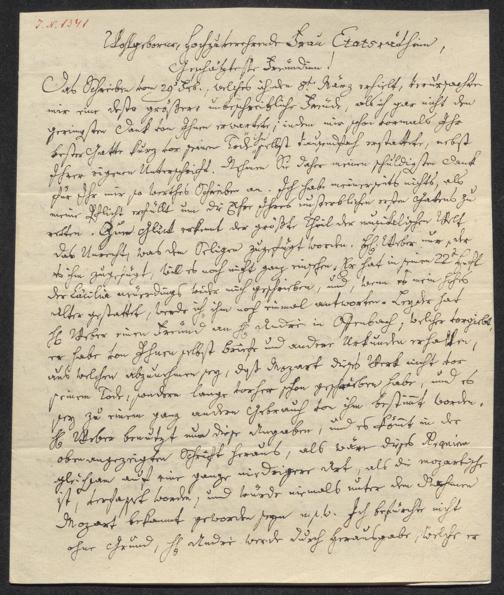 J. N. 1341
Wohlgeborne, hochzuverehrende Frau Etatsräthin,
Geschäzteste Freundin!
Das Schreiben von 20 Feb., welches ich den 8t März erhielt, verursachte
mir eine desto größere unbeschreibliche Freude, als ich gar nicht den
geringsten Dank von Ihnen erwartete, indem mir schon vormals Ihr
bester Gatte kurz vor seinem Tode selbst tausendfach erstattete, nebst
Ihrer eigenen Unterschrift. Nehmen Sie daher meinen schuldigsten Dank
für Ihr mir so werthes Schreiben an. Ich habe meinerseits nichts, als
meine Pflicht erfüllt um die Ehre Ihres unsterblichen ersten Gatten zu
retten. Zum Glück erkent der größte Theil der musikalischen Welt
das Unrecht, was dem Seligen zugefügt worden. H: Weber nur, der
es ihm zugefügt, will es noch nicht ganz einsehen. Er hat in seinem 22t Heft
der Cäcilia neuerdings wider mich geschrieben, und, wenn es mein hohes
Alter gestattet, werde ich ihm noch einmal antworten. Leyder hat
H: Weber einen Freund an H: André in Offenbach, welcher vorgiebt
er habe von Ihnen selbst Briefe und andere Urkunden erhalten,
aus welchen abzunehmen sey, daß Mozart dieses Werk nicht vor
seinem Tode, sondern lange vorher schon geschrieben habe, und es
sey zu einem ganz andern Gebrauch von ihm bestimmt worden.
H: Weber benützt nun diese Angaben, und es kömt in der
obenangezeigten Schrift heraus, als wäre dieses Requiem
gleichsam auf eine ganze niedrigere Art, als die mozartische
ist, verfasset worden, und würde niemals unter dem Nahmen
Mozart bekannt geworden seyn u.s.w. Ich befürchte nicht
ohne Grund, H: André werde durch Herausgabe, welche er